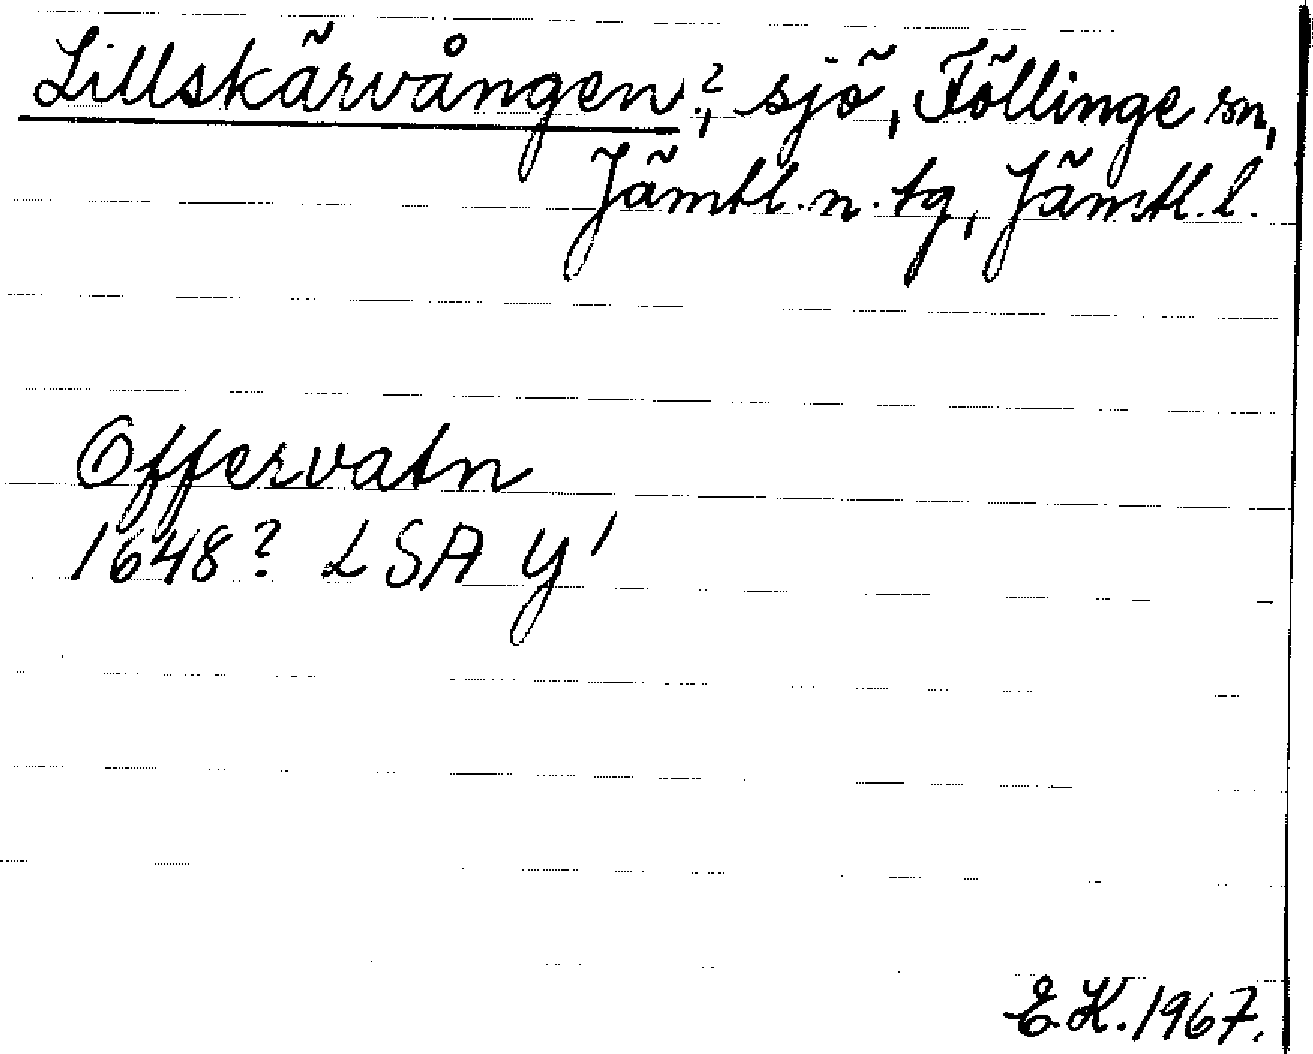 Lillskärvången?, sjö, Föllinge sn,
Jämtl. n. tg, Jämtl. l.
Offervatn
1648? LSA Y'
E.K. 1967.